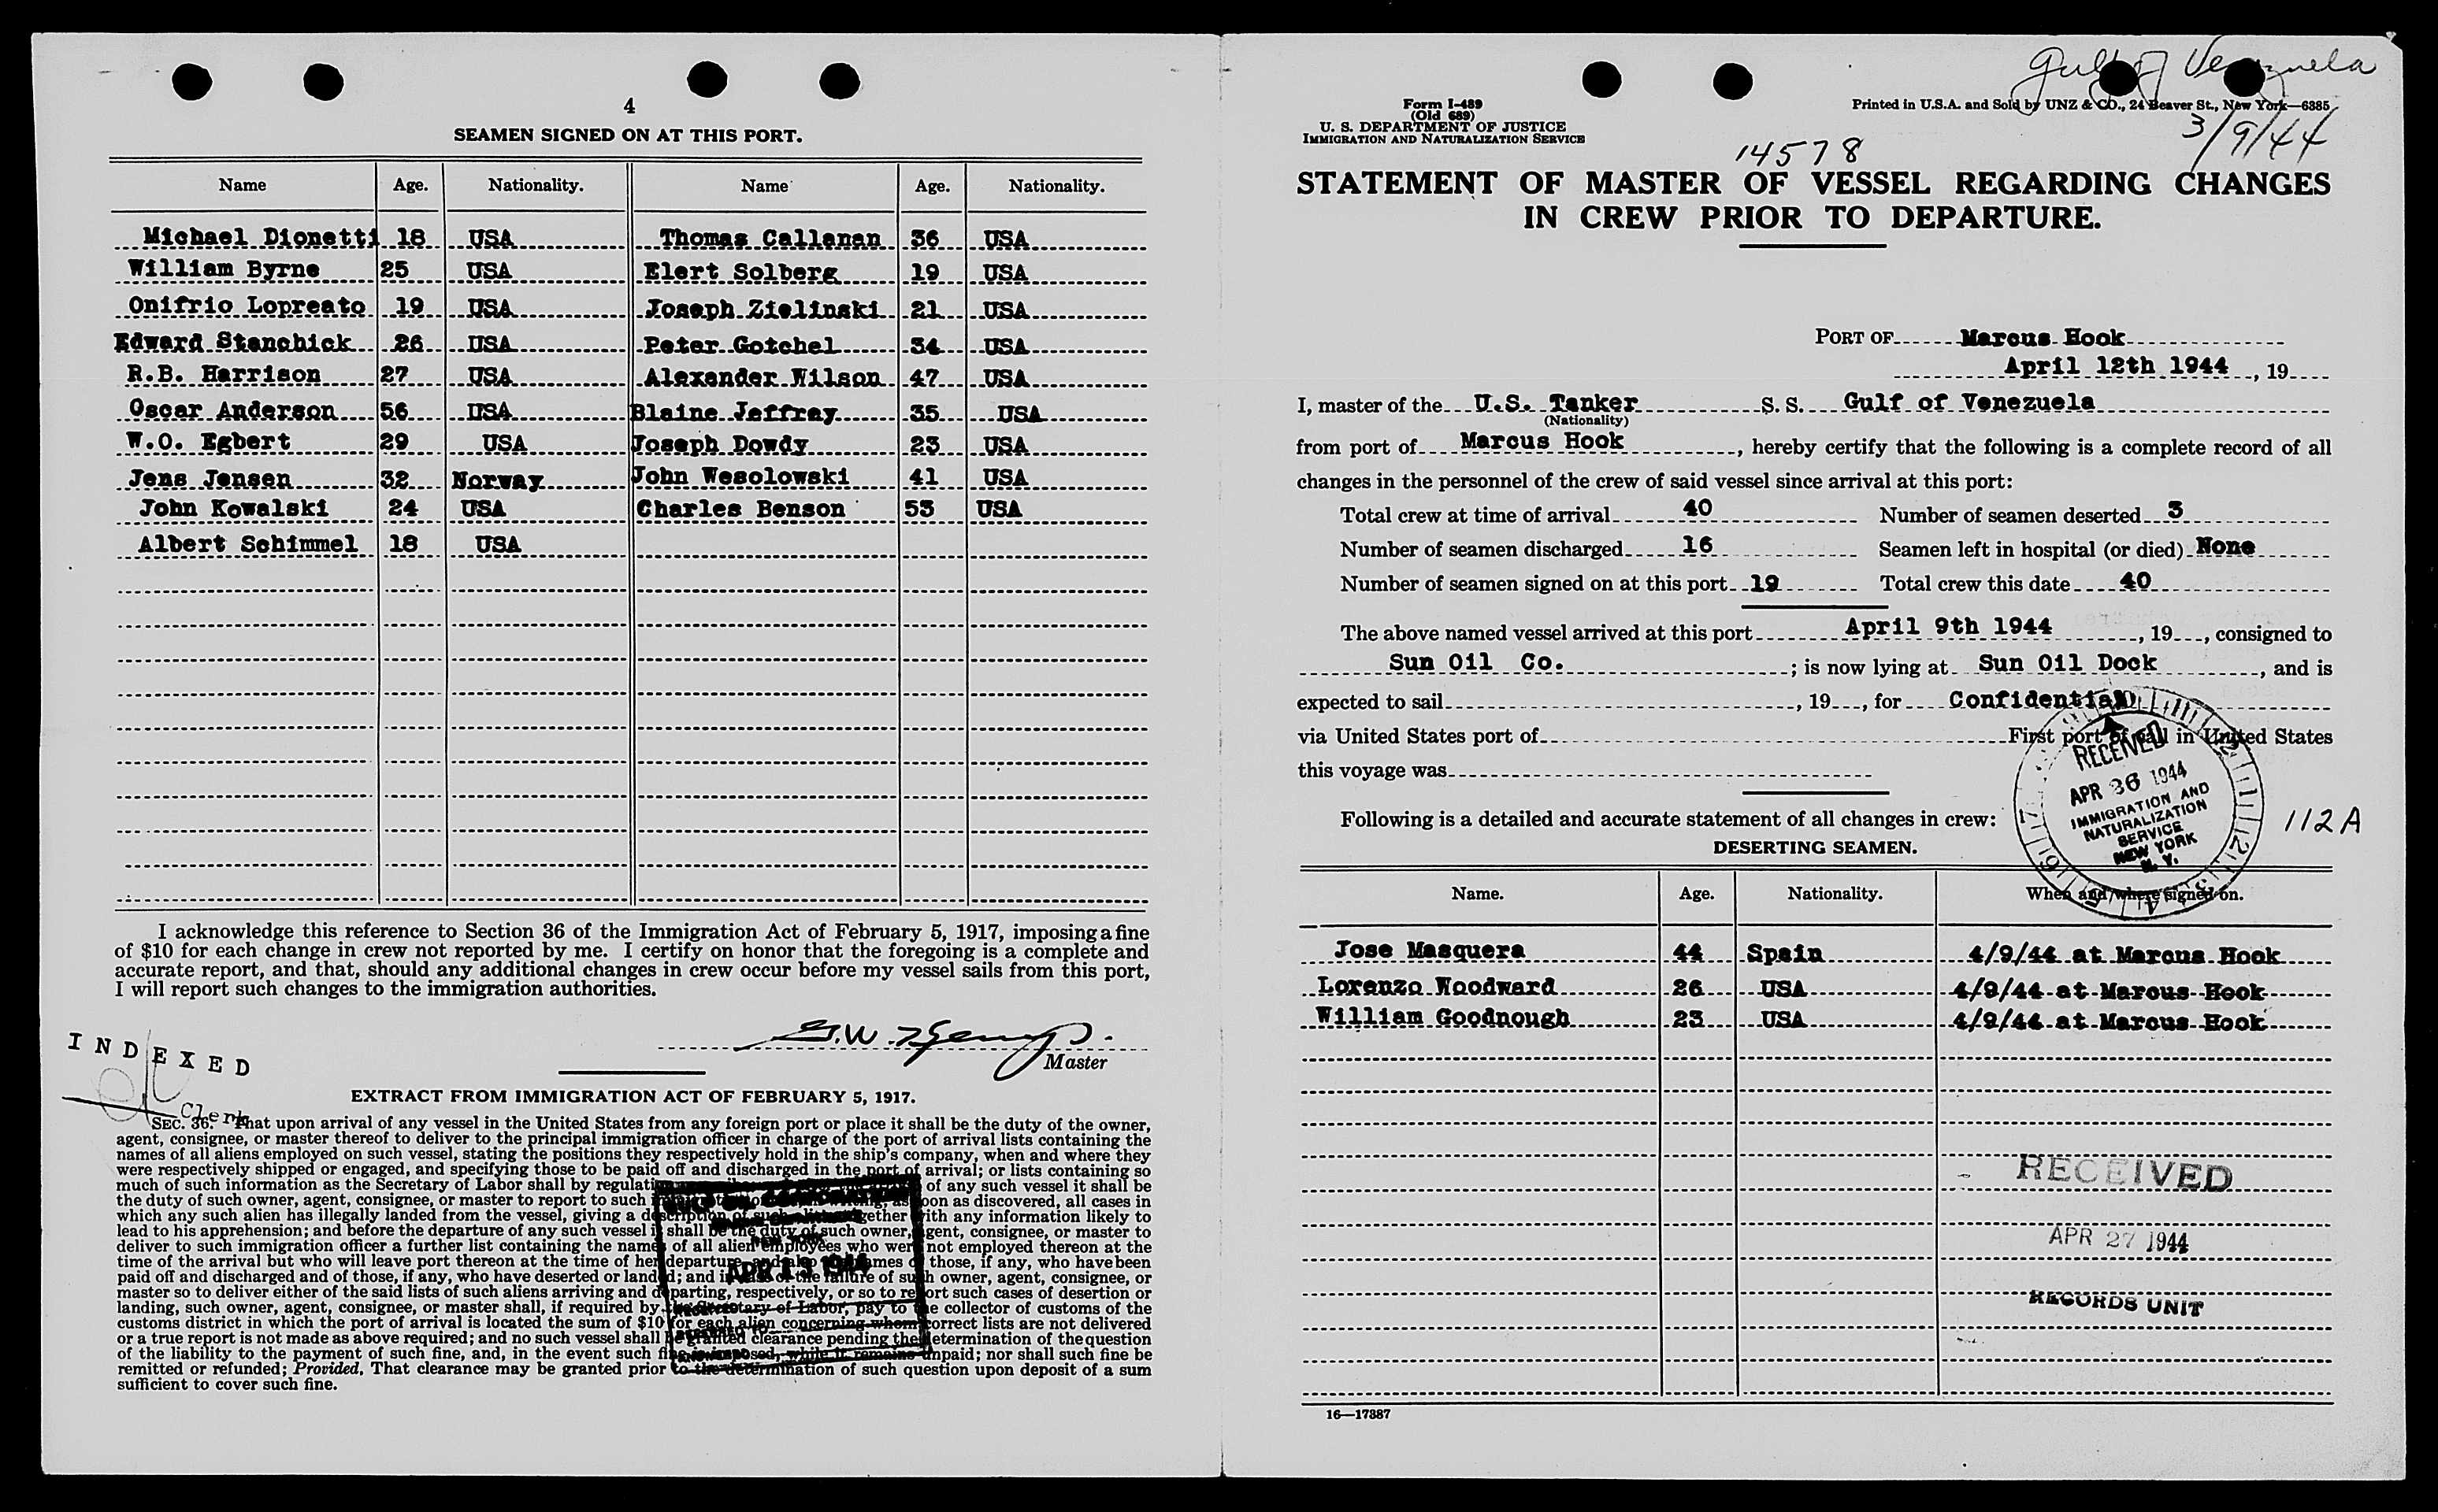 4
SEAMEN SIGNED ON AT THIS PORT.
Name Age. Nationality. Name Age. Nationality.
Michael Dionetti 18 USA Thomas Callanan 36 USA
William Byrne 25 USA Elert Solberg 19 USA
Onifrio Lopreato 19 USA Joseph Zielinski 21 USA
Edward Stanchick 26 USA Peter Gotchel 34 USA
R.B. Harrison 27 USA Alexander Wilson 47 USA
Oscar Anderson 56 USA Blaine Jeffrey 35 USA
W.O. Egbert 29 USA Joseph Dowdy 23 USA
Jens Jensen 32 Norway John Wesolowski 41 USA
John Kowalski 24 USA Charles Benson 53 USA
Albert Schimmel 18 USA
I acknowledge this reference to Section 36 of the Immigration Act of February 5, 1917, imposing a fine
of $10 for each change in crew not reported by me. I certify on honor that the foregoing is a complete and
accurate report, and that, should any additional changes in crew occur before my vessel sails from this port,
I will report such changes to the immigration authorities.
G.W.
Master
INDEXED
Clerk
EXTRACT FROM IMMIGRATION ACT OF FEBRUARY 5, 1917.
SEC. 36. That upon arrival of any vessel in the United States from any foreign port or place it shall be the duty of the owner,
agent, consignee, or master thereof to deliver to the principal immigration officer in charge of the port of arrival lists containing the
names of all aliens employed on such vessel, stating the positions they respectively hold in the ship's company, when and where they
were respectively shipped or engaged, and specifying those to be paid off and discharged in the port of arrival; or lists containing so
much of such information as the Secretary of Labor shall by regulation of any such vessel it shall be
the duty of such owner, agent, consignee, or master to report to such as soon as discovered, all cases in
which any such alien has illegally landed from the vessel, giving a description of such alien together with any information likely to
lead to his apprehension; and before the departure of any such vessel it shall be the duty of such owner, agent, consignee, or master to
deliver to such immigration officer a further list containing the names of all alien employees who were not employed thereon at the
time of the arrival but who will leave port thereon at the time of her departure and also names of those, if any, who have been
paid off and discharged and of those, if any, who have deserted or landed; and in case of the failure of such owner, agent, consignee, or
master so to deliver either of the said lists of such aliens arriving and departing, respectively, or so to report such cases of desertion or
landing, such owner, agent, consignee, or master shall, if required by the Secretary of Labor, pay to the collector of customs of the
customs district in which the port of arrival is located the sum of $10 for each alien concerning whom correct lists are not delivered
or a true report is not made as above required; and no such vessel shall be granted clearance pending the determination of the question
of the liability to the payment of such fine, and, in the event such fine is imposed, while it remains unpaid; nor shall such fine be
remitted or refunded; Provided, That clearance may be granted prior to the determination of such question upon deposit of a sum
sufficient to cover such fine.
NEW YORK
APR 13 1944
Gulf of Venezuela
Form I-489
(Old 689)
U. S. DEPARTMENT OF JUSTICE
IMMIGRATION AND NATURALIZATION SERVICE
Printed in U.S.A. and Sold by UNZ & CO., 24 Beaver St., New York—6385
3/9/44
14578
STATEMENT OF MASTER OF VESSEL REGARDING CHANGES
IN CREW PRIOR TO DEPARTURE.
PORT OF Marcus Hook
April 12th 1944, 19
I, master of the U.S. Tanker S. S. Gulf of Venezuela
(Nationality)
from port of Marcus Hook, hereby certify that the following is a complete record of all
changes in the personnel of the crew of said vessel since arrival at this port:
Total crew at time of arrival 40 Number of seamen deserted 3
Number of seamen discharged 16 Seamen left in hospital (or died) None
Number of seamen signed on at this port 19 Total crew this date 40
The above named vessel arrived at this port April 9th 1944, 19, consigned to
Sun Oil Co.; is now lying at Sun Oil Dock, and is
expected to sail, 19, for Confidential
via United States port of First port of call in United States
this voyage was
RECEIVED
APR 26 1944
IMMIGRATION AND
NATURALIZATION
SERVICE
NEW YORK
N. Y.
112A
Following is a detailed and accurate statement of all changes in crew:
DESERTING SEAMEN.
Name. Age. Nationality. When and where signed on.
Jose Masquera 44 Spain 4/9/44 at Marcus Hook
Lorenzo Woodward 26 USA 4/9/44 at Marcus Hook
William Goodnough 23 USA 4/9/44 at Marcus Hook
RECEIVED
APR 27 1944
RECORDS UNIT
16—17387